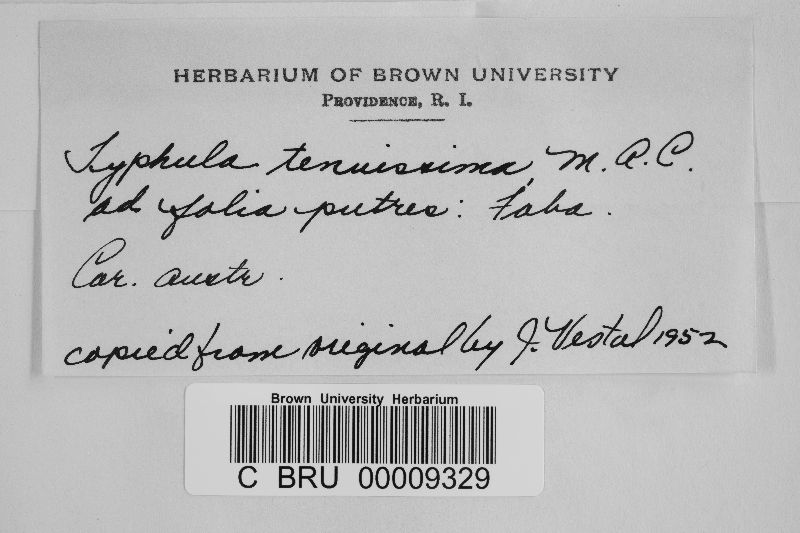 HERBARIUM OF BROWN UNIVERSITY
PROVIDENCE, R. I.
Typhula tenuissima, M. A. C.
ad folia putres: Faba.
Car. austr.
copied from original by J. Vestal 1952
Brown University Herbarium
C BRU 00009329